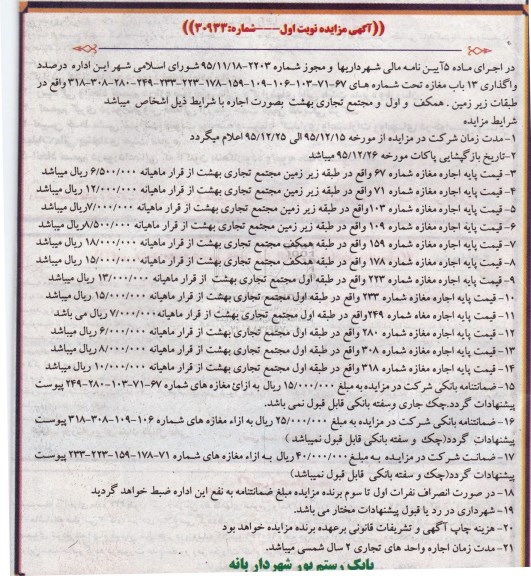 ((آگهی مزایده نوبت اول----شماره:۳۰۹۳۳))
در اجرای ماده ۵آیین نامه مالی شهرداریها و مجوز شماره ۲۲۰۳-۹۵/۱۱/۱۸ شورای اسلامی شهر این اداره درصدد
واگذاری ۱۳ باب مغازه تحت شماره های ۶۷-۷۱-۱۰۳-۱۰۶-۱۰۹-۱۵۹-۱۷۸-۲۲۳-۲۳۳-۲۴۹-۲۸۰-۳۰۸-۳۱۸ واقع در
طبقات زیر زمین . همکف و اول و مجتمع تجاری بهشت بصورت اجاره با شرایط ذیل اشخاص میباشد
شرایط مزایده
۱-مدت زمان شرکت در مزایده از مورخه ۹۵/۱۲/۱۵ الی ۹۵/۱۲/۲۵ اعلام میگردد
۲-تاریخ بازگشایی پاکات مورخه ۹۵/۱۲/۲۶ میباشد
۳- قیمت پایه اجاره مغازه شماره ۶۷ واقع در طبقه زیر زمین مجتمع تجاری بهشت از قرار ماهیانه ۶/۵۰۰/۰۰۰ ریال میباشد
۴- قیمت پایه اجاره مغازه شماره ۷۱ واقع در طبقه زیر زمین مجتمع تجاری بهشت از قرار ماهیانه ۱۲/۰۰۰/۰۰۰ ریال میباشد
۵- قیمت پایه اجاره مغازه شماره ۱۰۳واقع در طبقه زیر زمین مجتمع تجاری بهشت از قرار ماهیانه ۷/۰۰۰/۰۰۰ریال میباشد
۶- قیمت پایه اجاره مغازه شماره ۱۰۹ واقع در طبقه زیر زمین مجتمع تجاری بهشت از قرار ماهیانه ۸/۵۰۰/۰۰۰ریال میباشد
۷- قیمت پایه اجاره مغازه شماره ۱۵۹ واقع در طبقه همکف مجتمع تجاری بهشت از قرار ماهیانه ۱۸/۰۰۰/۰۰۰ ریال میباشد
۸- قیمت پایه اجاره مغازه شماره ۱۷۸ واقع در طبقه همکف مجتمع تجاری بهشت از قرار ماهیانه ۱۵/۰۰۰/۰۰۰ ریال میباشد
۹- قیمت پایه اجاره مغازه شماره ۲۲۳ واقع در طبقه اول مجتمع تجاری بهشت از قرار ماهیانه ۱۳/۰۰۰/۰۰۰ ریال میباشد
۱۰- قیمت پایه اجاره مغازه شماره ۲۳۳ واقع در طبقه اول مجتمع تجاری بهشت از قرار ماهیانه ۱۵/۰۰۰/۰۰۰ ریال میباشد
۱۱- قیمت پایه اجاره مغاه شماره ۲۴۹واقع در طبقه اول مجتمع تجاری بهشت از قرار ماهیانه۷/۰۰۰/۰۰۰ ریال می باشد
۱۲- قیمت پایه اجاره مغازه شماره ۲۸۰ واقع در طبقه اول مجتمع تجاری بهشت از قرار ماهیانه ۶/۰۰۰/۰۰۰ ریال میباشد
۱۳- قیمت پایه اجاره مغازه شماره ۳۰۸ واقع در طبقه اول مجتمع تجاری بهشت از قرار ماهیانه ۸/۰۰۰/۰۰۰ ریال میباشد
۱۴- قیمت پایه اجاره مغازه شماره ۳۱۸ واقع در طبقه اول مجتمع تجاری بهشت از قرار ماهیانه ۱۰/۰۰۰/۰۰۰ ریال میباشد
۱۵-ضمانتنامه بانکی شرکت در مزایده به مبلغ ۱۵/۰۰۰/۰۰۰ ریال به ازائ مغازه های شماره ۶۷-۷۱-۱۰۳-۲۸۰-۲۴۹ پیوست
پیشنهادات گردد.چک جاری وسفته بانکی قابل قبول نمی باشد.
۱۶- ضمانتنامه بانکی شرکت در مزایده به مبلغ ۲۵/۰۰۰/۰۰۰ ریال به ازاء مغازه های شماره ۱۰۶-۱۰۹-۳۰۸-۳۱۸ پیوست
پیشنهادات گردد(چک و سفته بانکی قابل قبول نمیباشد )
۱۷- ضمانت شرکت در مزایده به مبلغ ۴۰/۰۰۰/۰۰۰ ریال به ازاء مغازه های شماره ۷۱-۱۷۸-۱۵۹-۲۲۳-۲۳۳ پیوست
پیشنهادات گردد(چک و سفته بانکی قابل قبول نمیباشد)
۱۸- در صورت انصراف نفرات اول تا سوم برنده مزایده مبلغ ضمانتنامه به نفع این اداره ضبط خواهد گردید
۱۹- شهرداری در رد یا قبول پیشنهادات مختار می باشد.
۲۰- هزینه چاپ آگهی و تشریفات قانونی برعهده برنده مزایده خواهد بود
۲۱- مدت زمان اجاره واحد های تجاری ۲ سال شمسی میباشد.
بابک رستم پور شهردار بانه